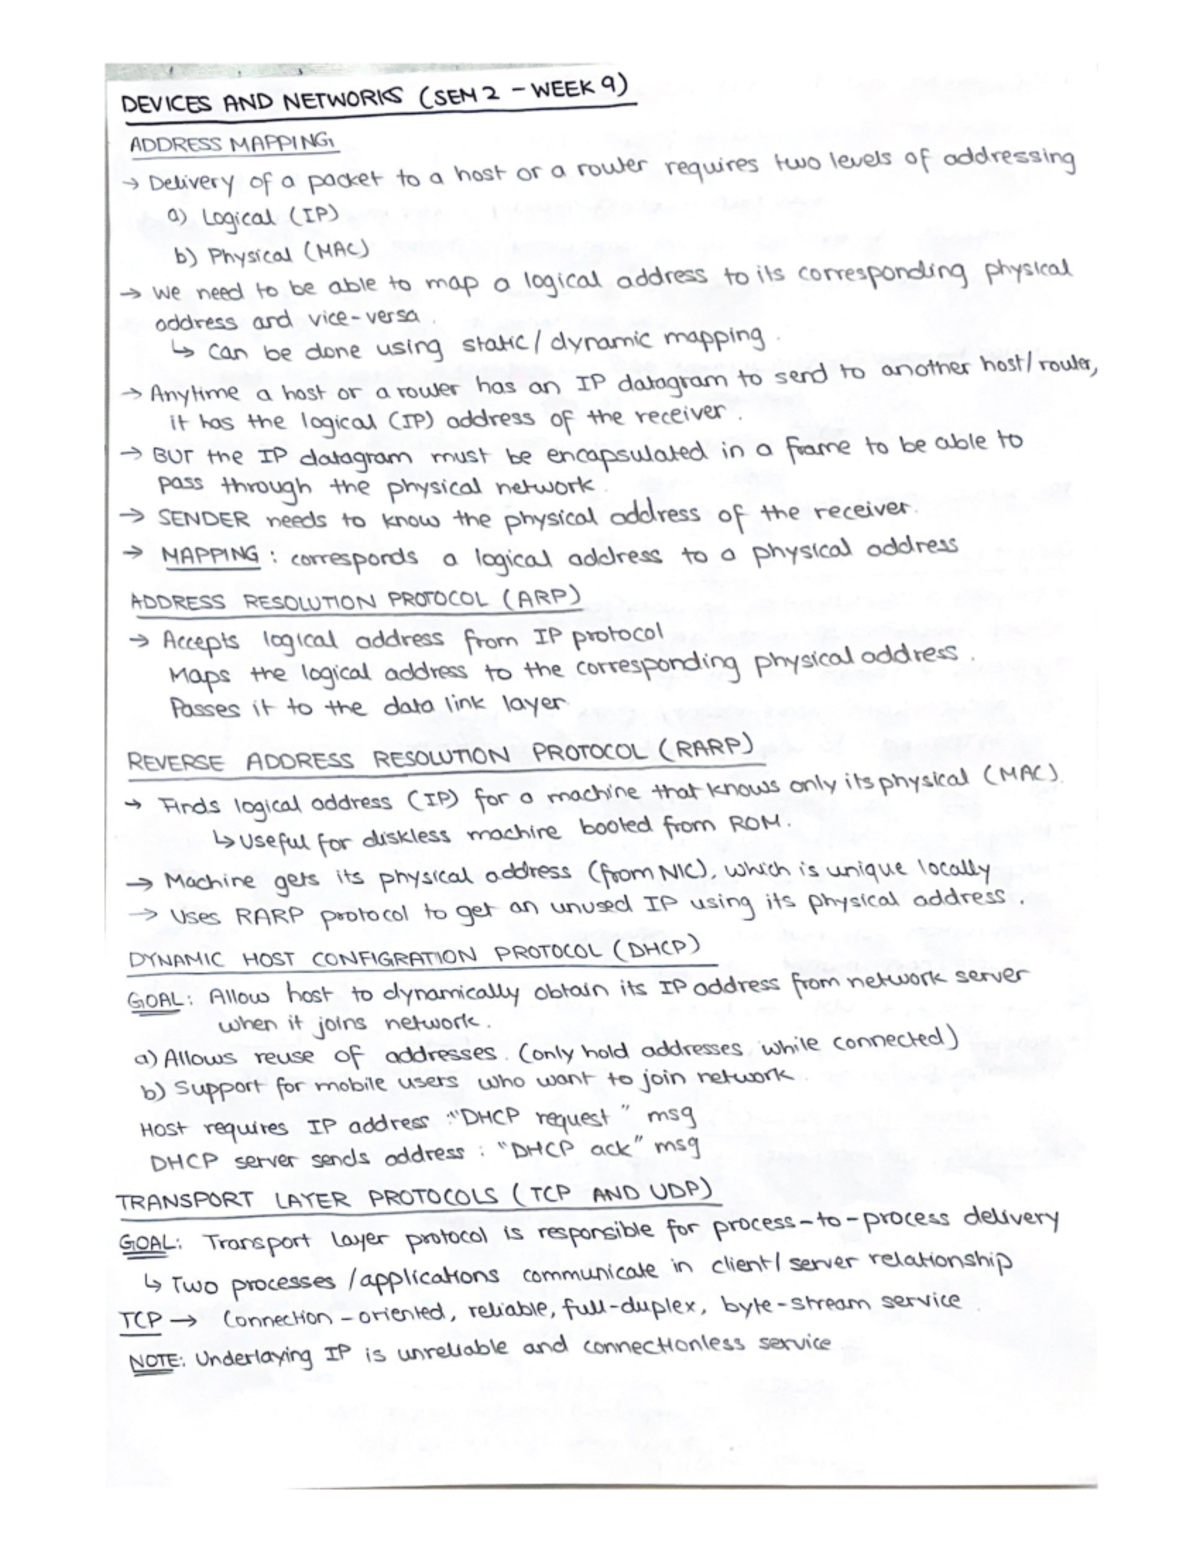 DEVICES AND NETWORKS (SEM 2 - WEEK 9)
ADDRESS MAPPING
→ Delivery of a packet to a host or a router requires two levels of addressing
a) Logical (IP)
b) Physical (MAC)
→ We need to be able to map a logical address to its corresponding physical
address and vice-versa.
↳ Can be done using static/dynamic mapping.
→ Anytime a host or a router has an IP datagram to send to another host/router,
it has the logical (IP) address of the receiver.
→ BUT the IP datagram must be encapsulated in a frame to be able to
pass through the physical network.
→ SENDER needs to know the physical address of the receiver.
→ MAPPING : corresponds a logical address to a physical address
ADDRESS RESOLUTION PROTOCOL (ARP)
→ Accepts logical address from IP protocol
Maps the logical address to the corresponding physical address.
Passes it to the data link layer.
REVERSE ADDRESS RESOLUTION PROTOCOL (RARP)
→ Finds logical address (IP) for a machine that knows only its physical (MAC).
↳ Useful for diskless machine booted from ROM.
→ Machine gets its physical address (from NIC), which is unique locally
→ Uses RARP protocol to get an unused IP using its physical address.
DYNAMIC HOST CONFIGRATION PROTOCOL (DHCP)
GOAL: Allow host to dynamically obtain its IP address from network server
when it joins network.
a) Allows reuse of addresses. (only hold addresses while connected)
b) Support for mobile users who want to join network.
Host requires IP address : "DHCP request" msg
DHCP server sends address : "DHCP ack" msg
TRANSPORT LAYER PROTOCOLS (TCP AND UDP)
GOAL: Transport layer protocol is responsible for process-to-process delivery
↳ Two processes/applications communicate in client/server relationship
TCP → Connection-oriented, reliable, full-duplex, byte-stream service.
NOTE: Underlaying IP is unreliable and connectionless service.